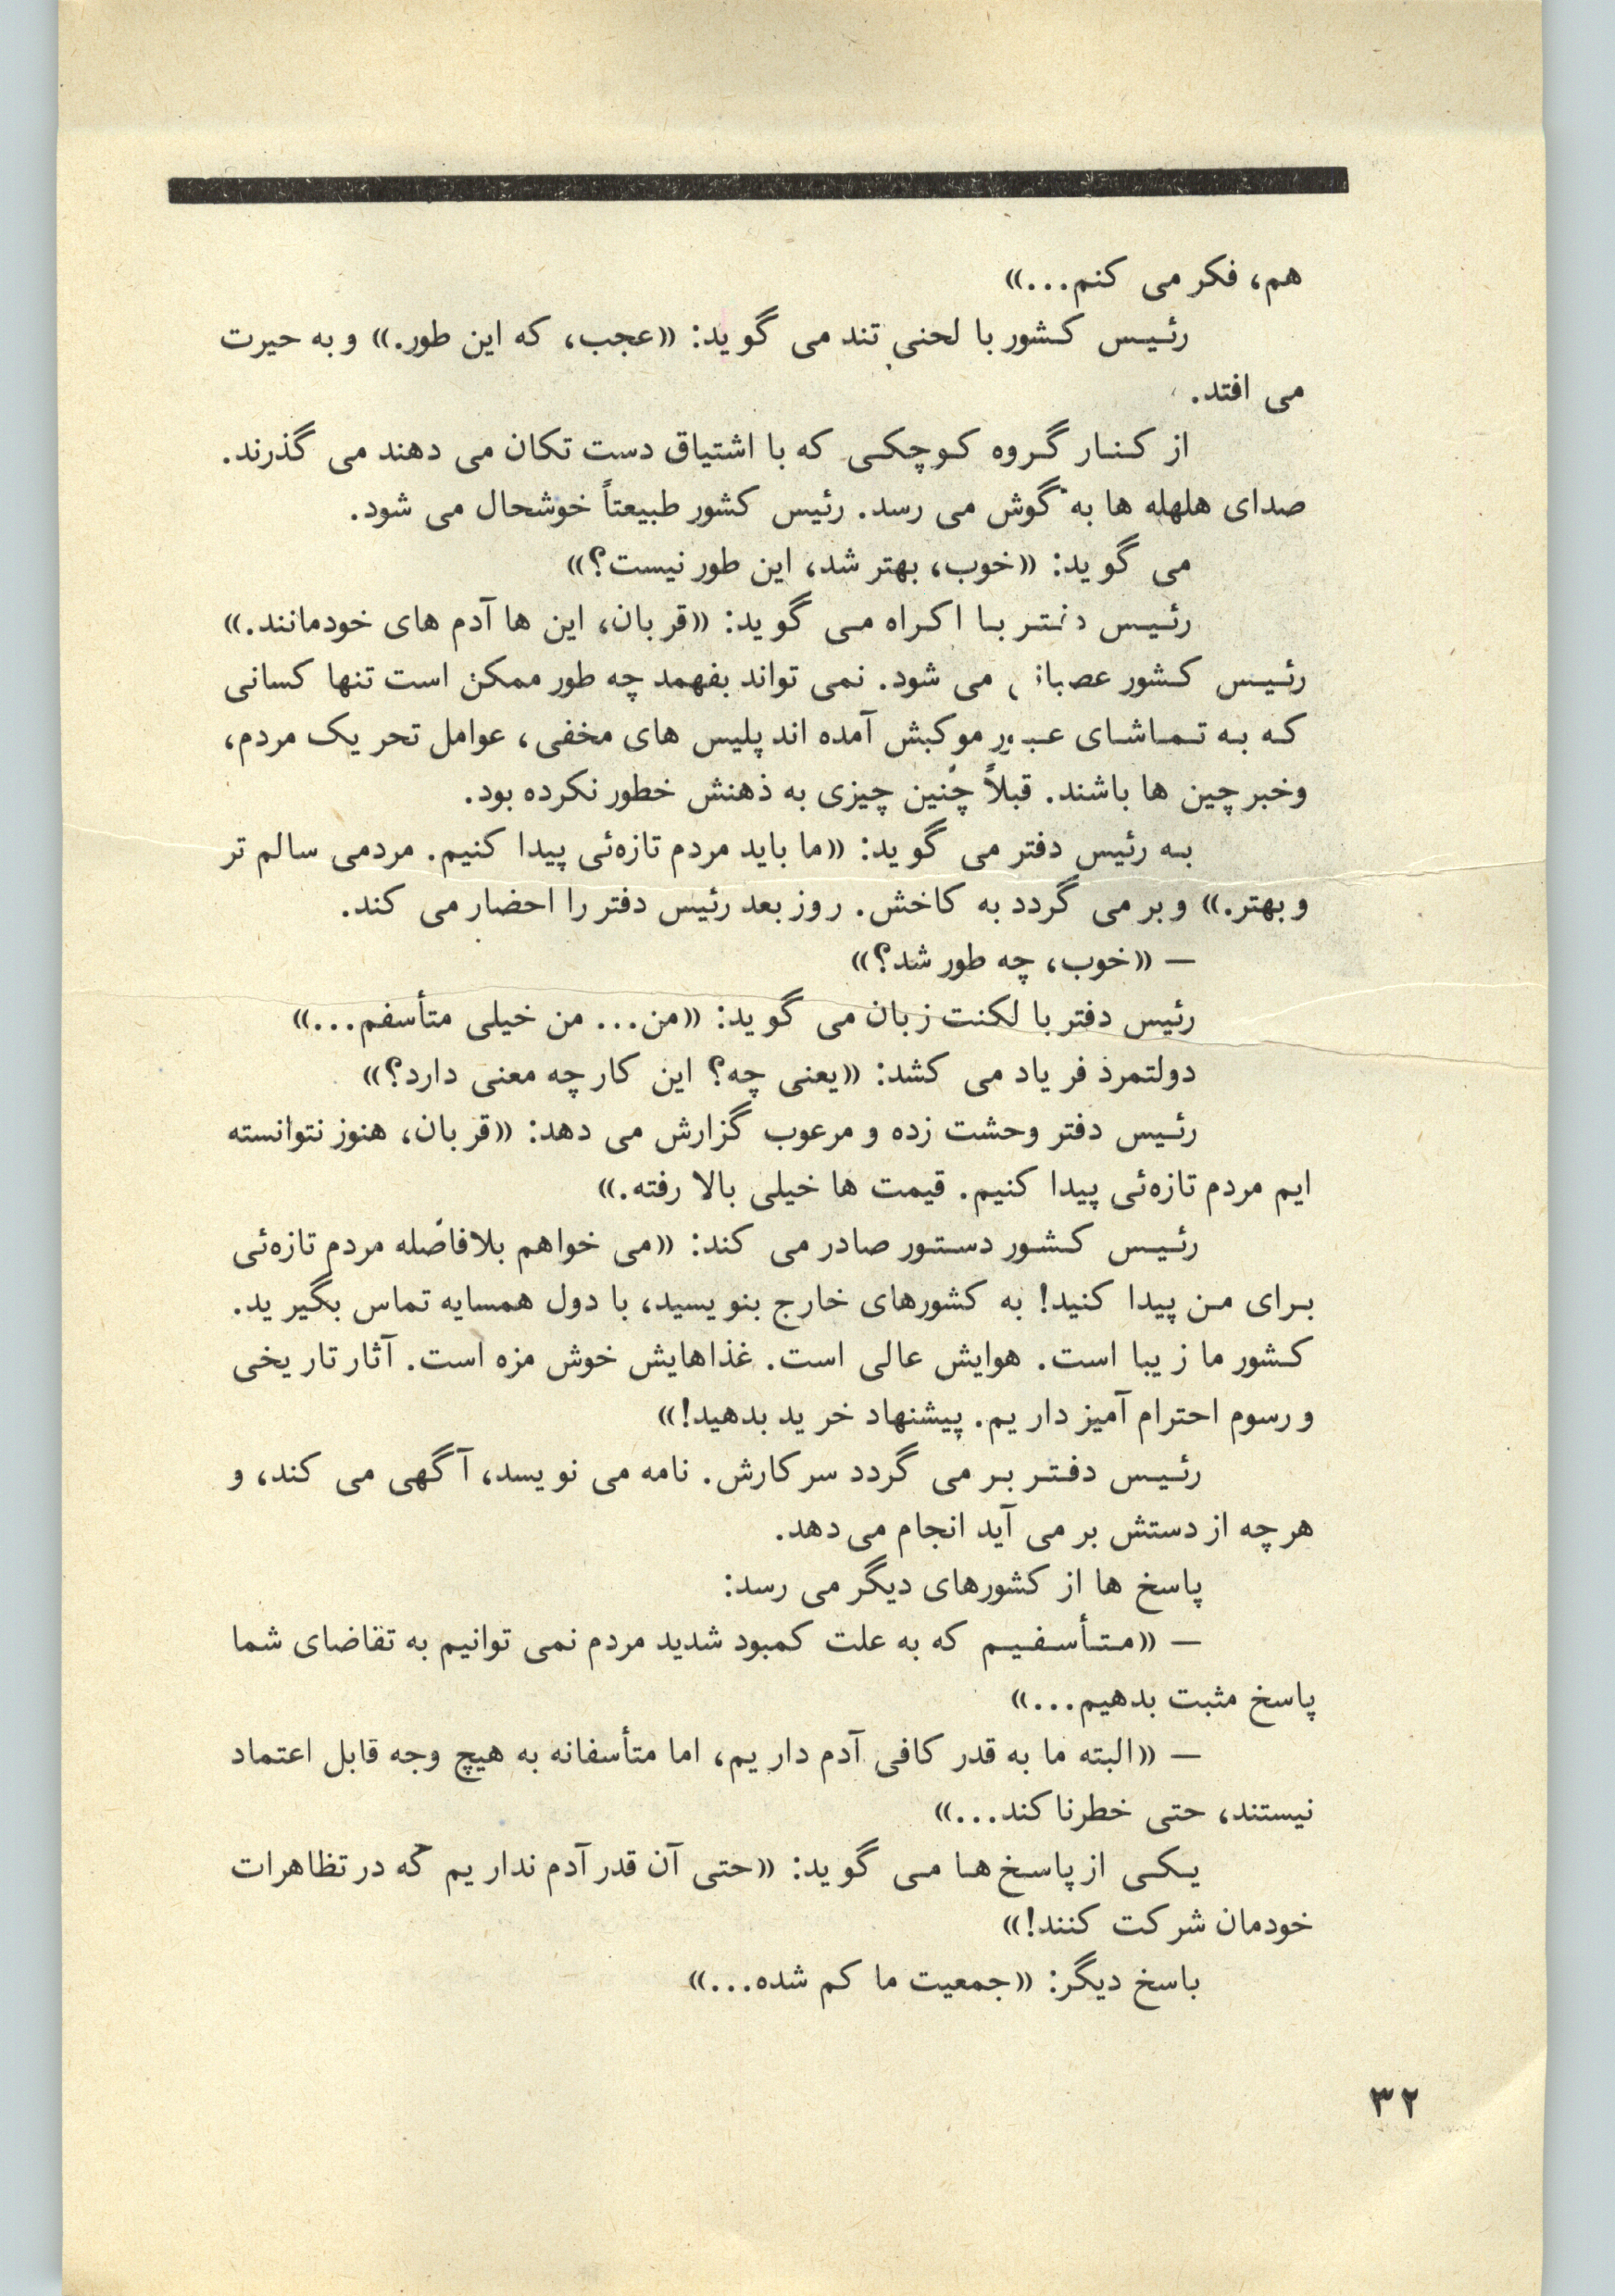 هم، فکر می کنم...»
رئیس کشور با لحنی تند می گوید: «عجب، که این طور.» و به حیرت
می افتد.
از کنار گروه کوچکی که با اشتیاق دست تکان می دهند می گذرند.
صدای هلهله ها به گوش می رسد. رئیس کشور طبیعتاً خوشحال می شود.
می گوید: «خوب، بهتر شد، این طور نیست؟»
رئیس دفتر با اکراه می گوید: «قربان، این ها آدم های خودمانند.»
رئیس کشور عصبانی می شود. نمی تواند بفهمد چه طور ممکن است تنها کسانی
که به تماشای عبور موکبش آمده اند پلیس های مخفی، عوامل تحریک مردم،
وخبرچین ها باشند. قبلاً چنین چیزی به ذهنش خطور نکرده بود.
به رئیس دفتر می گوید: «ما باید مردم تازه‌ئی پیدا کنیم. مردمی سالم تر
و بهتر.» و بر می گردد به کاخش. روز بعد رئیس دفتر را احضار می کند.
— «خوب، چه طور شد؟»
رئیس دفتر با لکنت زبان می گوید: «من... من خیلی متأسفم...»
دولتمرد فریاد می کشد: «یعنی چه؟ این کار چه معنی دارد؟»
رئیس دفتر وحشت زده و مرعوب گزارش می دهد: «قربان، هنوز نتوانسته
ایم مردم تازه‌ئی پیدا کنیم. قیمت ها خیلی بالا رفته.»
رئیس کشور دستور صادر می کند: «می خواهم بلافاصله مردم تازه‌ئی
برای من پیدا کنید! به کشورهای خارج بنویسید، با دول همسایه تماس بگیرید.
کشور ما زیبا است. هوایش عالی است. غذاهایش خوش مزه است. آثار تاریخی
و رسوم احترام آمیز داریم. پیشنهاد خرید بدهید!»
رئیس دفتر بر می گردد سر کارش. نامه می نویسد، آگهی می کند، و
هر چه از دستش بر می آید انجام می دهد.
پاسخ ها از کشورهای دیگر می رسد:
— «متأسفیم که به علت کمبود شدید مردم نمی توانیم به تقاضای شما
پاسخ مثبت بدهیم...»
— «البته ما به قدر کافی آدم داریم، اما متأسفانه به هیچ وجه قابل اعتماد
نیستند، حتی خطرناکند...»
یکی از پاسخ ها می گوید: «حتی آن قدر آدم نداریم که در تظاهرات
خودمان شرکت کنند!»
باسخ دیگر: «جمعیت ما کم شده...»
۳۲